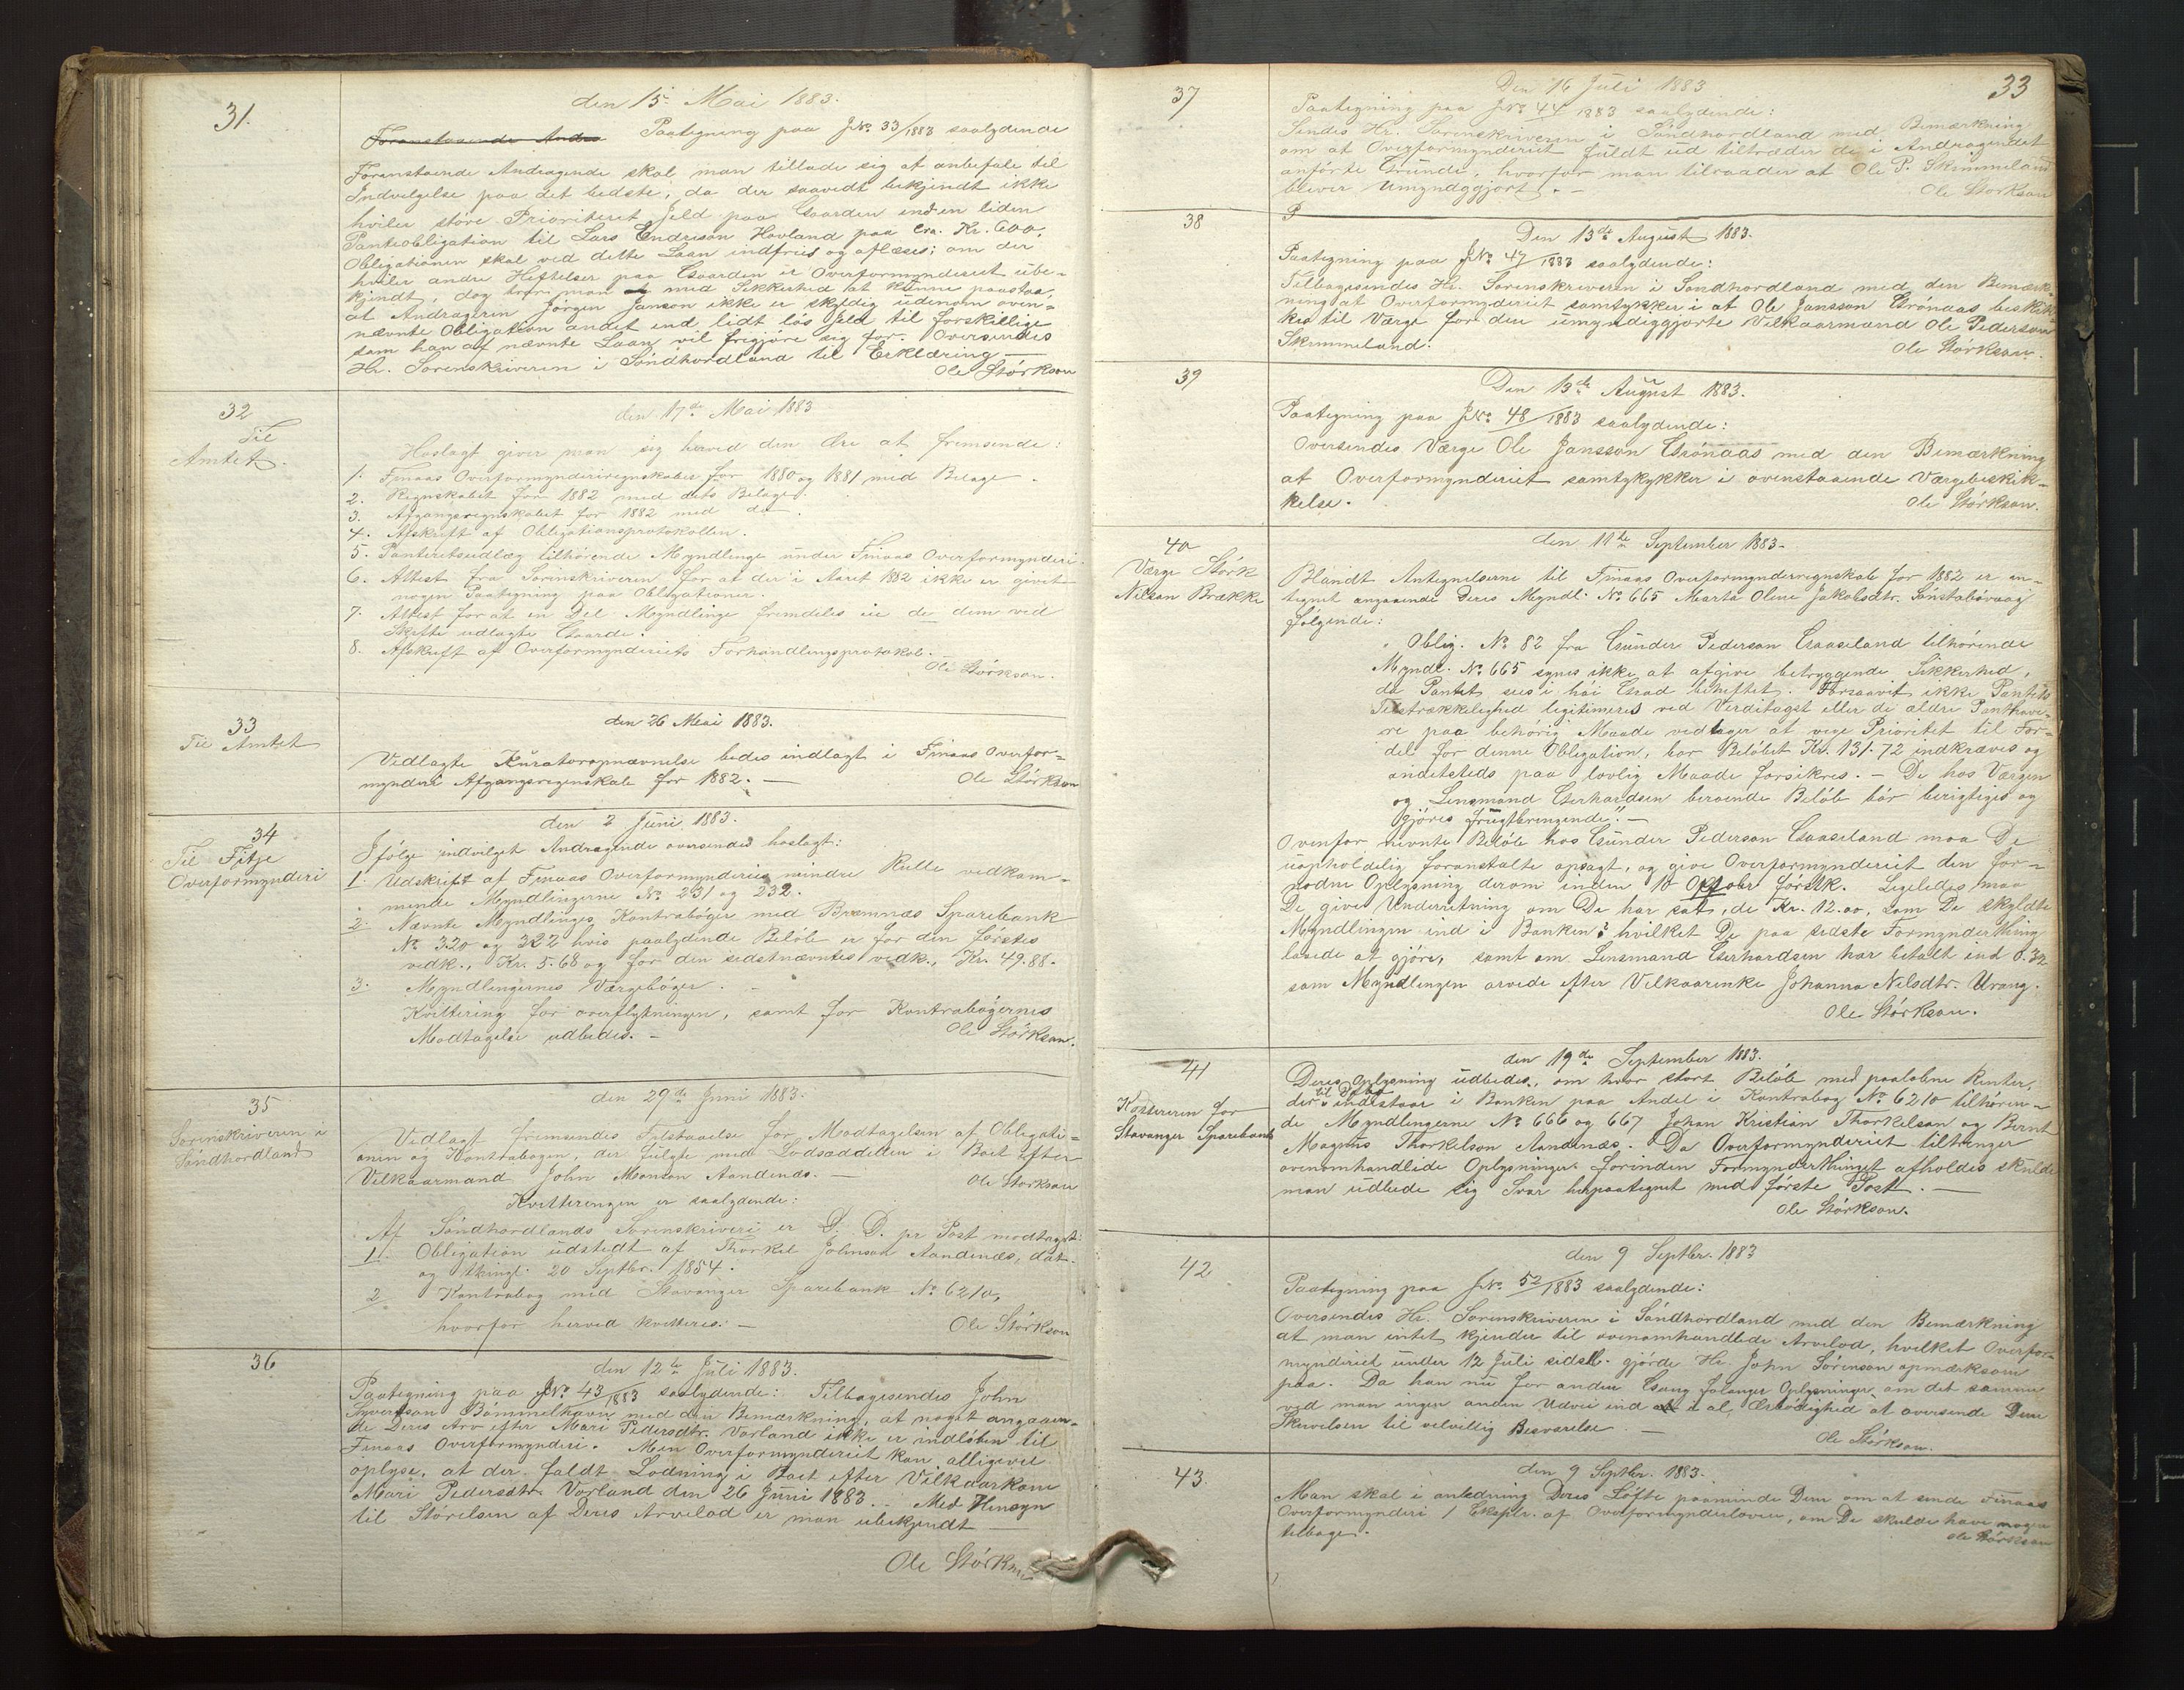 31.
den 15de Mai 1883.
Foranstaaende Andra Paategning paa JNo. 33/1883 saalydende
Foranstaaende Andragende skal man tillade sig at anbefale til
Indvilgelse paa det bedste, da der saavidt bekjendt ikke
hviler större Prioriteret Jeld paa Gaarden end en liden
Panteobligation til Lars Endreson Hovland paa Cra. Kr. 600.
Obligationen skal ved dette Laan indfries og aflæses; om der
hviler andre Heftelser paa Gaarden er Overformynderiet ube-
kjendt, dog tror man at med Sikkerhed at kunne paastaa,
at Andrageren Jörgen Janson ikke er skyldig udenom oven-
nævnte Obligation andet end lidt lös Jeld til forskillige
som han af nævnte Laan vil frigjöre sig for. Oversendes
Hr. Sorenskriveren i Söndhordland til Erklæring —
Ole Störkson
32
Til
Amtet.
den 17de Mai 1883
Hoslagt giver man sig herved den Ære at fremsende:
1. Finaas Overformynderiregnskaber for 1880 og 1881 med Bilage.
2. Regnskabet for 1882 med dets Bilage.
3. Afgangsregnskabet for 1882 med do.
4. Afskrift af Obligationsprotokollen.
5. Panteretsudlæg tilhörende Myndlinge under Finaas Overformynderi.
6. Attest fra Sorinskriveren for at der i Aaret 1882 ikke er givet
nogen Paategning paa Obligationer.
7. Attest for at en Del Myndlinge fremdeles eie de dem ved
Skifte udlagte Gaarde.
8. Afskrift af Overformynderiets Forhandlingsprotokol.
Ole Störkson.
33
Til Amtet
den 26 Mai 1883.
Vedlagte Kuratoropnævnelse bedes indlagt i Finaas Overfor-
mynderi Afgangsregnskab for 1882. —
Ole Störkson
34
Til Fitje
Overformynderi
den 2 Juni 1883.
Ifölge indvilget Andragende oversendes hoslagt:
1. Udskrift af Finaas Overformynderies mindre Rulle vedkom-
mende Myndlingerne No. 231 og 232.
2. Nævnte Myndlinges Kontraböger med Bremnæs Sparebank
No. 320 og 322 hvis paalydende Belöb er for den förstes
vedk., Kr. 5.68 og for den sidstnævntes vedk., Kr. 49.88.
3. Myndlingernes Værgeböger. —
Kvittering for overflytningen, samt for Kontrabögernes
Modtagelse udbedes. —
Ole Störkson.
35
Sorinskriveren i
Söndhordland
den 29de Juni 1883.
Vedlagt fremsendes Tilstaaelse for Modtagelsen af Obligati-
onen og Kontrabogen, der fulgte med Lodsæddelen i Boet efter
Vilkaarmand John Monson Aandenes. —
Ole Störkson
Kvitteringen er saalydende:
Af Söndhordlands Sorinskriveri er D. D. pr Post modtaget:
1. Obligation udstedt af Thorkel Johnson Aandenæs, dat.
og thingl. 20 Septbr. 1854.
2 Kontrabog med Stavanger Sparebank No. 6210,
hvorfor herved kvitteres. —
Ole Störkson
36
den 12te Juli 1883.
Paategning paa JNo. 43/1883 saalydende: Tilbagesendes John
Syvertson Bömmelhavn med den Bemærkning, at noget angaaen-
de Deres Arv efter Mari Pedersdtr. Vorland ikke er indlöben til
Finaas Overformynderi. Men Overformynderiet kan alligevel
oplyse, at der faldt Lodning i Boet efter Vilkaarkone
Mari Pedersdtr. Vorland den 26 Juni 1883. — Med Hensyn
til Störelsen af Deres Arvelod er man ubekjendt —
Ole Störkson
33
37
Den 16 Juli 1883
Paategning paa JNo. 44/1883 saalydende:
Sendes Hr. Sorenskriveren i Söndhordland med Bemærkning
om at Overformynderiet fuldt ud tiltræder de i Andragendet
anförte Grunde, hvorfor man tilraader at Ole P. Skimmeland
bliver Umyndggjort. —
Ole Störkson
38
P
Den 13de August 1883.
Paategning paa JNo. 47/1883 saalydende:
Tilbagesendes Hr. Sorenskriveren i Söndhordland med den Bemærk-
ning at Overformynderiet samtykker i at Ole Jansson Grönaas beskik-
kes til Værge for den umyndiggjorte Vilkaarmand Ole Pederson
Skimmeland.
Ole Störkson.
39
Den 13de August 1883.
Paategning paa JNo. 48/1883 saalydende:
Oversendes Værge Ole Jansson Grönaas med den Bemærkning
at Overformynderiet samtykykker i ovenstaaende Værgebeskik-
kelse.
Ole Störkson.
40
Værge Störk
Nilsen Brække
den 11te September 1883.
Blandt Antegnelserne til Finaas Overformynderregnskab for 1882 er an-
tegnet angaaende Deres Myndl. No. 665 Marta Oline Jakobsdtr. Sönstabövaag
fölgende:
„ Oblig. No. 82 fra Gunder Pederson Gaaseland tilhörende
Myndl. No. 665 synes ikke at afgive betryggende Sikkerhed,
da Pantet sees i höi Grad beheftet. Forsaavit ikke Pantets
Tilstrækkelighed legitimeres ved Verditagst eller de ældre Panthave-
re paa behörig Maade vedtager at vege Prioritet til For-
del for denne Obligation, bör Belöbet Kr. 131.72 indkræves og
andetsteds paa lovlig Maade forsikres. — De hos Værgen
og Lensmand Gerhardsen beroende Belöb bör berigtiges og
gjöres frugtbringende“. —
Ovenfor nævnte Belöb hos Gunder Pederson Gaaseland maa De
uopholdelig foranstalte opsagt, og give Overformynderiet den for-
nödne Oplysning derom inden 10 Oktober förstk. Ligeledes maa
De give Underretning om De har sat, de Kr. 12.00, som De skyldte
Myndlingen ind i Banken? hvilket De paa sidste Formynderthing
lovede at gjöre, samt om Lensmand Gerhardsen har betalt ind 0.32
som Myndlingen arvede efter Vilkaarenke Johanna Nilsdtr. Urang.
Ole Störkson.
41
Kassereren for
Stavanger Sparebank
den 19de September 1883.
Deres Oplysning udbedes, om hvor stort Belöb med paalöbne Renter,
der til Dato indestaar i Banken paa Andel i Kontrabog No. 6210 tilhören-
de Myndlingerne No. 666 og 667 Johan Kristian Thorkelson og Bernt
Magnus Thorkelson Aandenæs. Da Overformynderiet tiltrænger
ovenomhandlede Oplysninger forinden Formynderthinget afholdes skulde
man udbede sig Svar herpaategnet med förste Post. —
Ole Störkson.
42
den 9 Septbr. 1883
Paategning paa JNo. 52/1883 saalydende:
Oversendes Hr. Sorenskriveren i Söndhordland med den Bemærkning
at man intet kjender til ovenomhandlede Arvelod, hvilket Overfor-
mynderiet under 12 Juli sidstl. gjörde Hr. John Sörenson opmærksom
paa. Da han nu for anden Gang forlanger Oplysninger om det samme
ved man ingen anden Udvei end i al Ærbödighed at oversende Dem
Skrivelsen til velvillig Besvarelse. —
Ole Störkson.
43.
den 9 Septbr. 1883.
Man skal i anledning Deres Löfte paaminde Dem om at sende Finaas
Overformynderi 1 Exeplr. af Overformynderloven, om De skulde have nogen
tilbage.
Ole Störkson